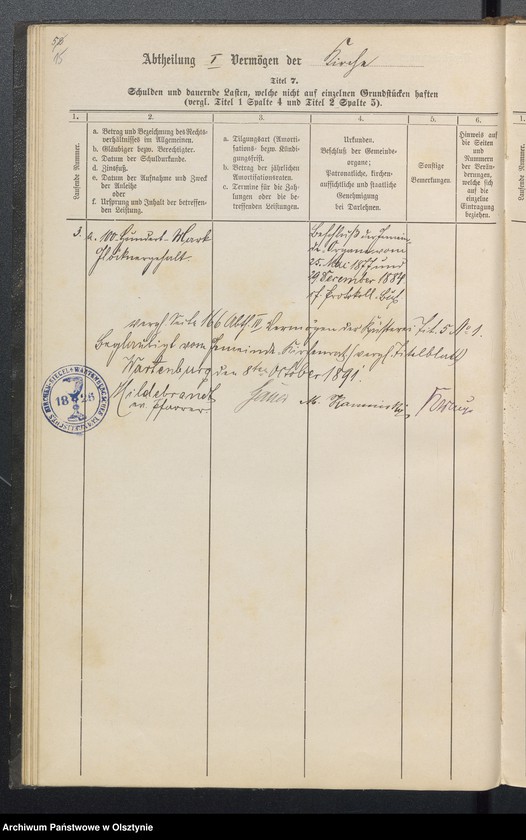 56
Abtheilung I Vermögen der Kirche
Titel 7.
Schulden und dauernde Lasten, welche nicht auf einzelnen Grundstücken haften
(vergl. Titel 1 Spalte 4 und Titel 2 Spalte 5).
1.
2.
3.
4.
5.
6.
1.
Laufende Nummer.
a. Betrag und Bezeichnung des Rechts-
verhältnisses im Allgemeinen.
b. Gläubiger bezw. Berechtigter.
c. Datum der Schulburkunde.
d. Zinsfuß.
e. Datum der Aufnahme und Zweck
der Anleihe
oder
f. Ursprung und Inhalt der betreffen-
den Leistung.
a. Tilgungsart (Amorti-
sations- bezw. Kündi-
gungsfrist.
b. Betrag der jährlichen
Amortisationsraten.
c. Termine für die Zah-
lungen oder die be-
treffenden Leistungen.
Urkunden.
Beschluß der Gemeinde-
organe;
Patronatliche, kirchen-
aufsichtliche und staatliche
Genehmigung
bei Darlehnen.
Sonstige
Bemerkungen.
Hinweis auf
die Seiten
und
Nummern
der Verän-
derungen,
welche sich
auf die
einzelne
Eintragung
beziehen.
3.
a. 100. Hundert - Mark
Glöcknergehalt.
Beschluß der Gemein
de. Organe vom
25. Mai 1877 und
29 December 1884
cf. Protokoll. Buch
vergl. Seite 166 Abth. IV Vermögen der Küsterei Tit. 5 No 1.
Beglaubigt vom Gemeinde-Kirchenrath (vergl. Titelblatt)
Wartenburg den 8ten October 1891.
Hildebrandt
ev. Pfarrer.
M. Kaminski
1826
Archiwum Państwowe w Olsztynie